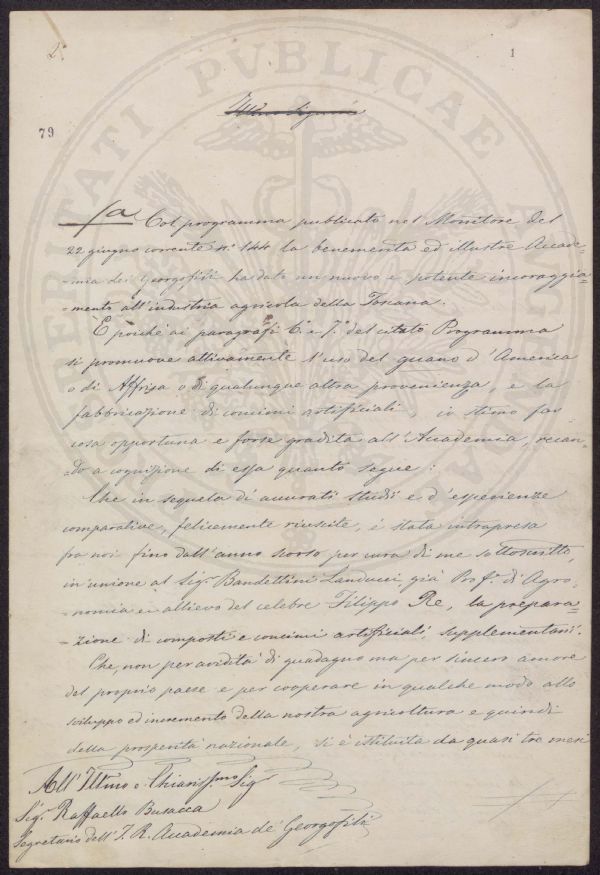 2.
1
79
Illmo Signore
Col programma publicato nel Monitore del
22 giugno corrente N.° 144 la benemerita ed illustre Accade=
=mia dei Georgofili ha dato un nuovo e potente incoraggia=
=mento all'industria agricola della Toscana.
E poiché ai paragrafi 6.° e 7.° del citato Programma
si promuove attivamente l'uso del guano d'America
o di Affrica o di qualunque altra provenienza, e la
fabbricazione di concimi artificiali io stimo far
cosa opportuna e forse gradita all'Accademia, recan=
=do a cognizione di essa quanto segue:
Che in sequela di accurati studii e d'esperienze
comparative, felicemente riuscite, è stata intrapresa
fra noi fino dall'anno scorso per cura di me sottoscritto,
in unione al Sig.r Bandettini Landucci, già Prof.e di Agro=
=nomia e allievo del celebre Filippo Re, la prepara=
=zione di composti e concimi artificiali supplementari.
Che, non per avidità di guadagno ma per sincero amore
del proprio paese e per cooperare in qualche modo allo
sviluppo ed incremento della nostra agricoltura e quindi
della prosperità nazionale, si è istituita da quasi tre mesi
All' Illmo e Chiariss.mo Sig.
Sig. Raffaello Busacca
Segretario dell' I. R. Accademia de' Georgofili
PROSPERITATI PVBLICAE AVGENDAE